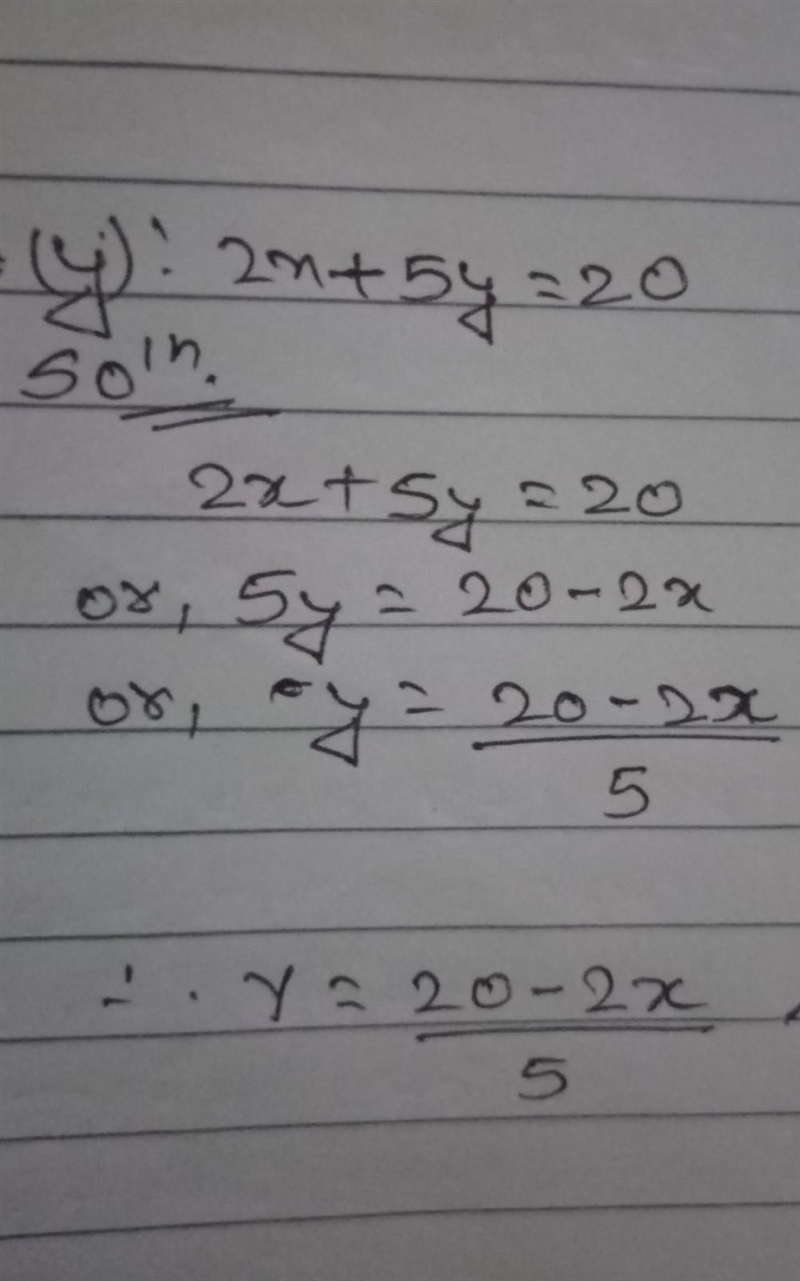 (y): 2x+5y=20
Sol^n.
2x+5y=20
or, 5y=20-2x
or, y=20-2x/5
∴ Y=20-2x/5